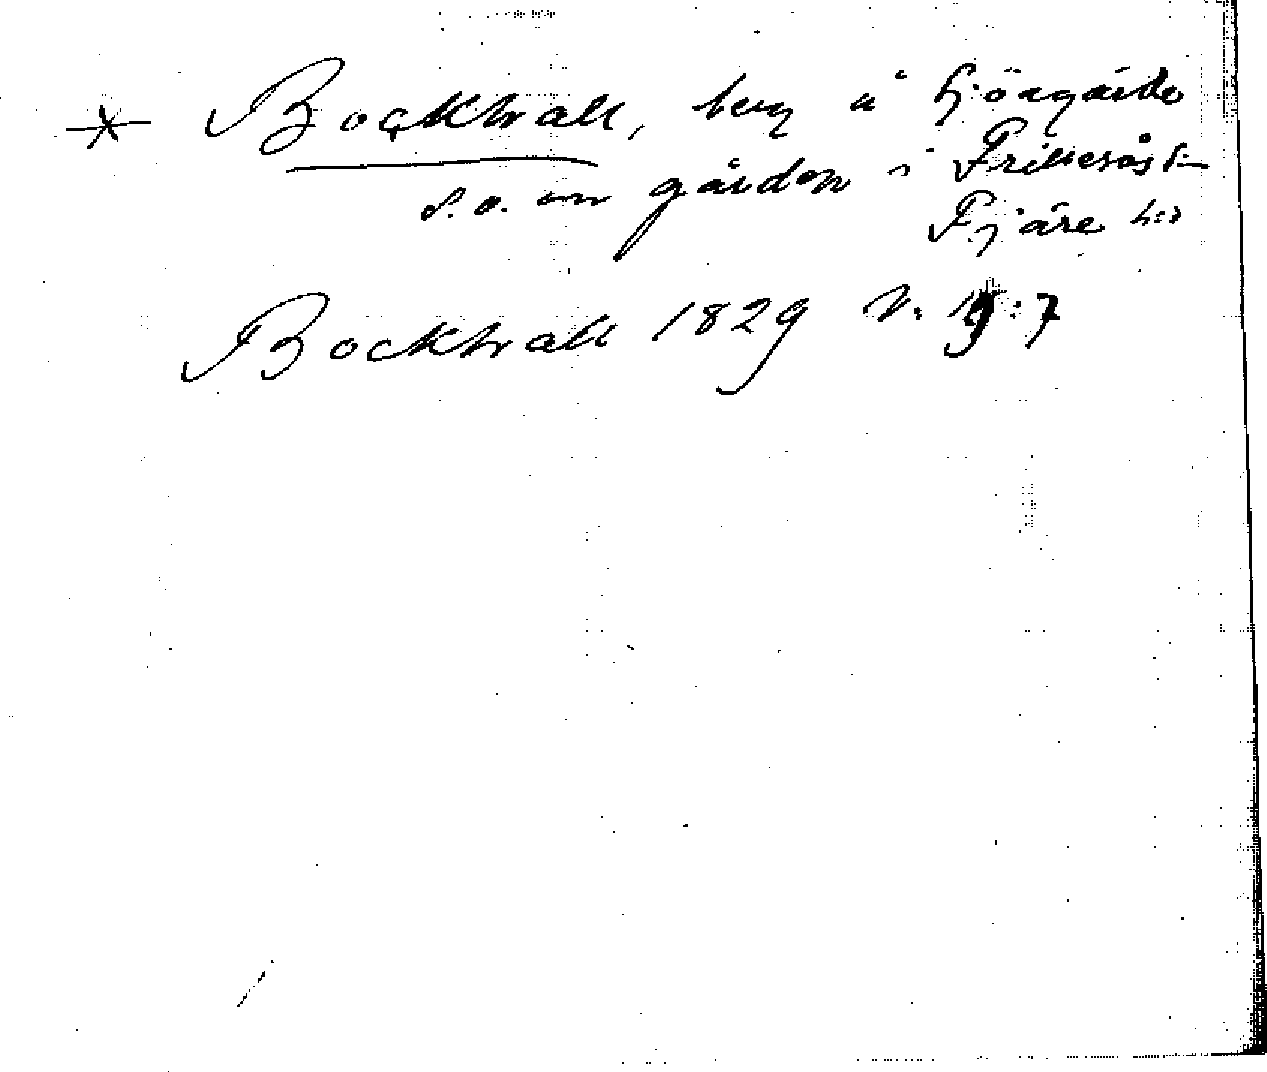 * Bockhall, berg å Hjörgärde
s.o. om gården i Frillesås sn
Fjäre hd
Bockhall 1829 N. 19:7